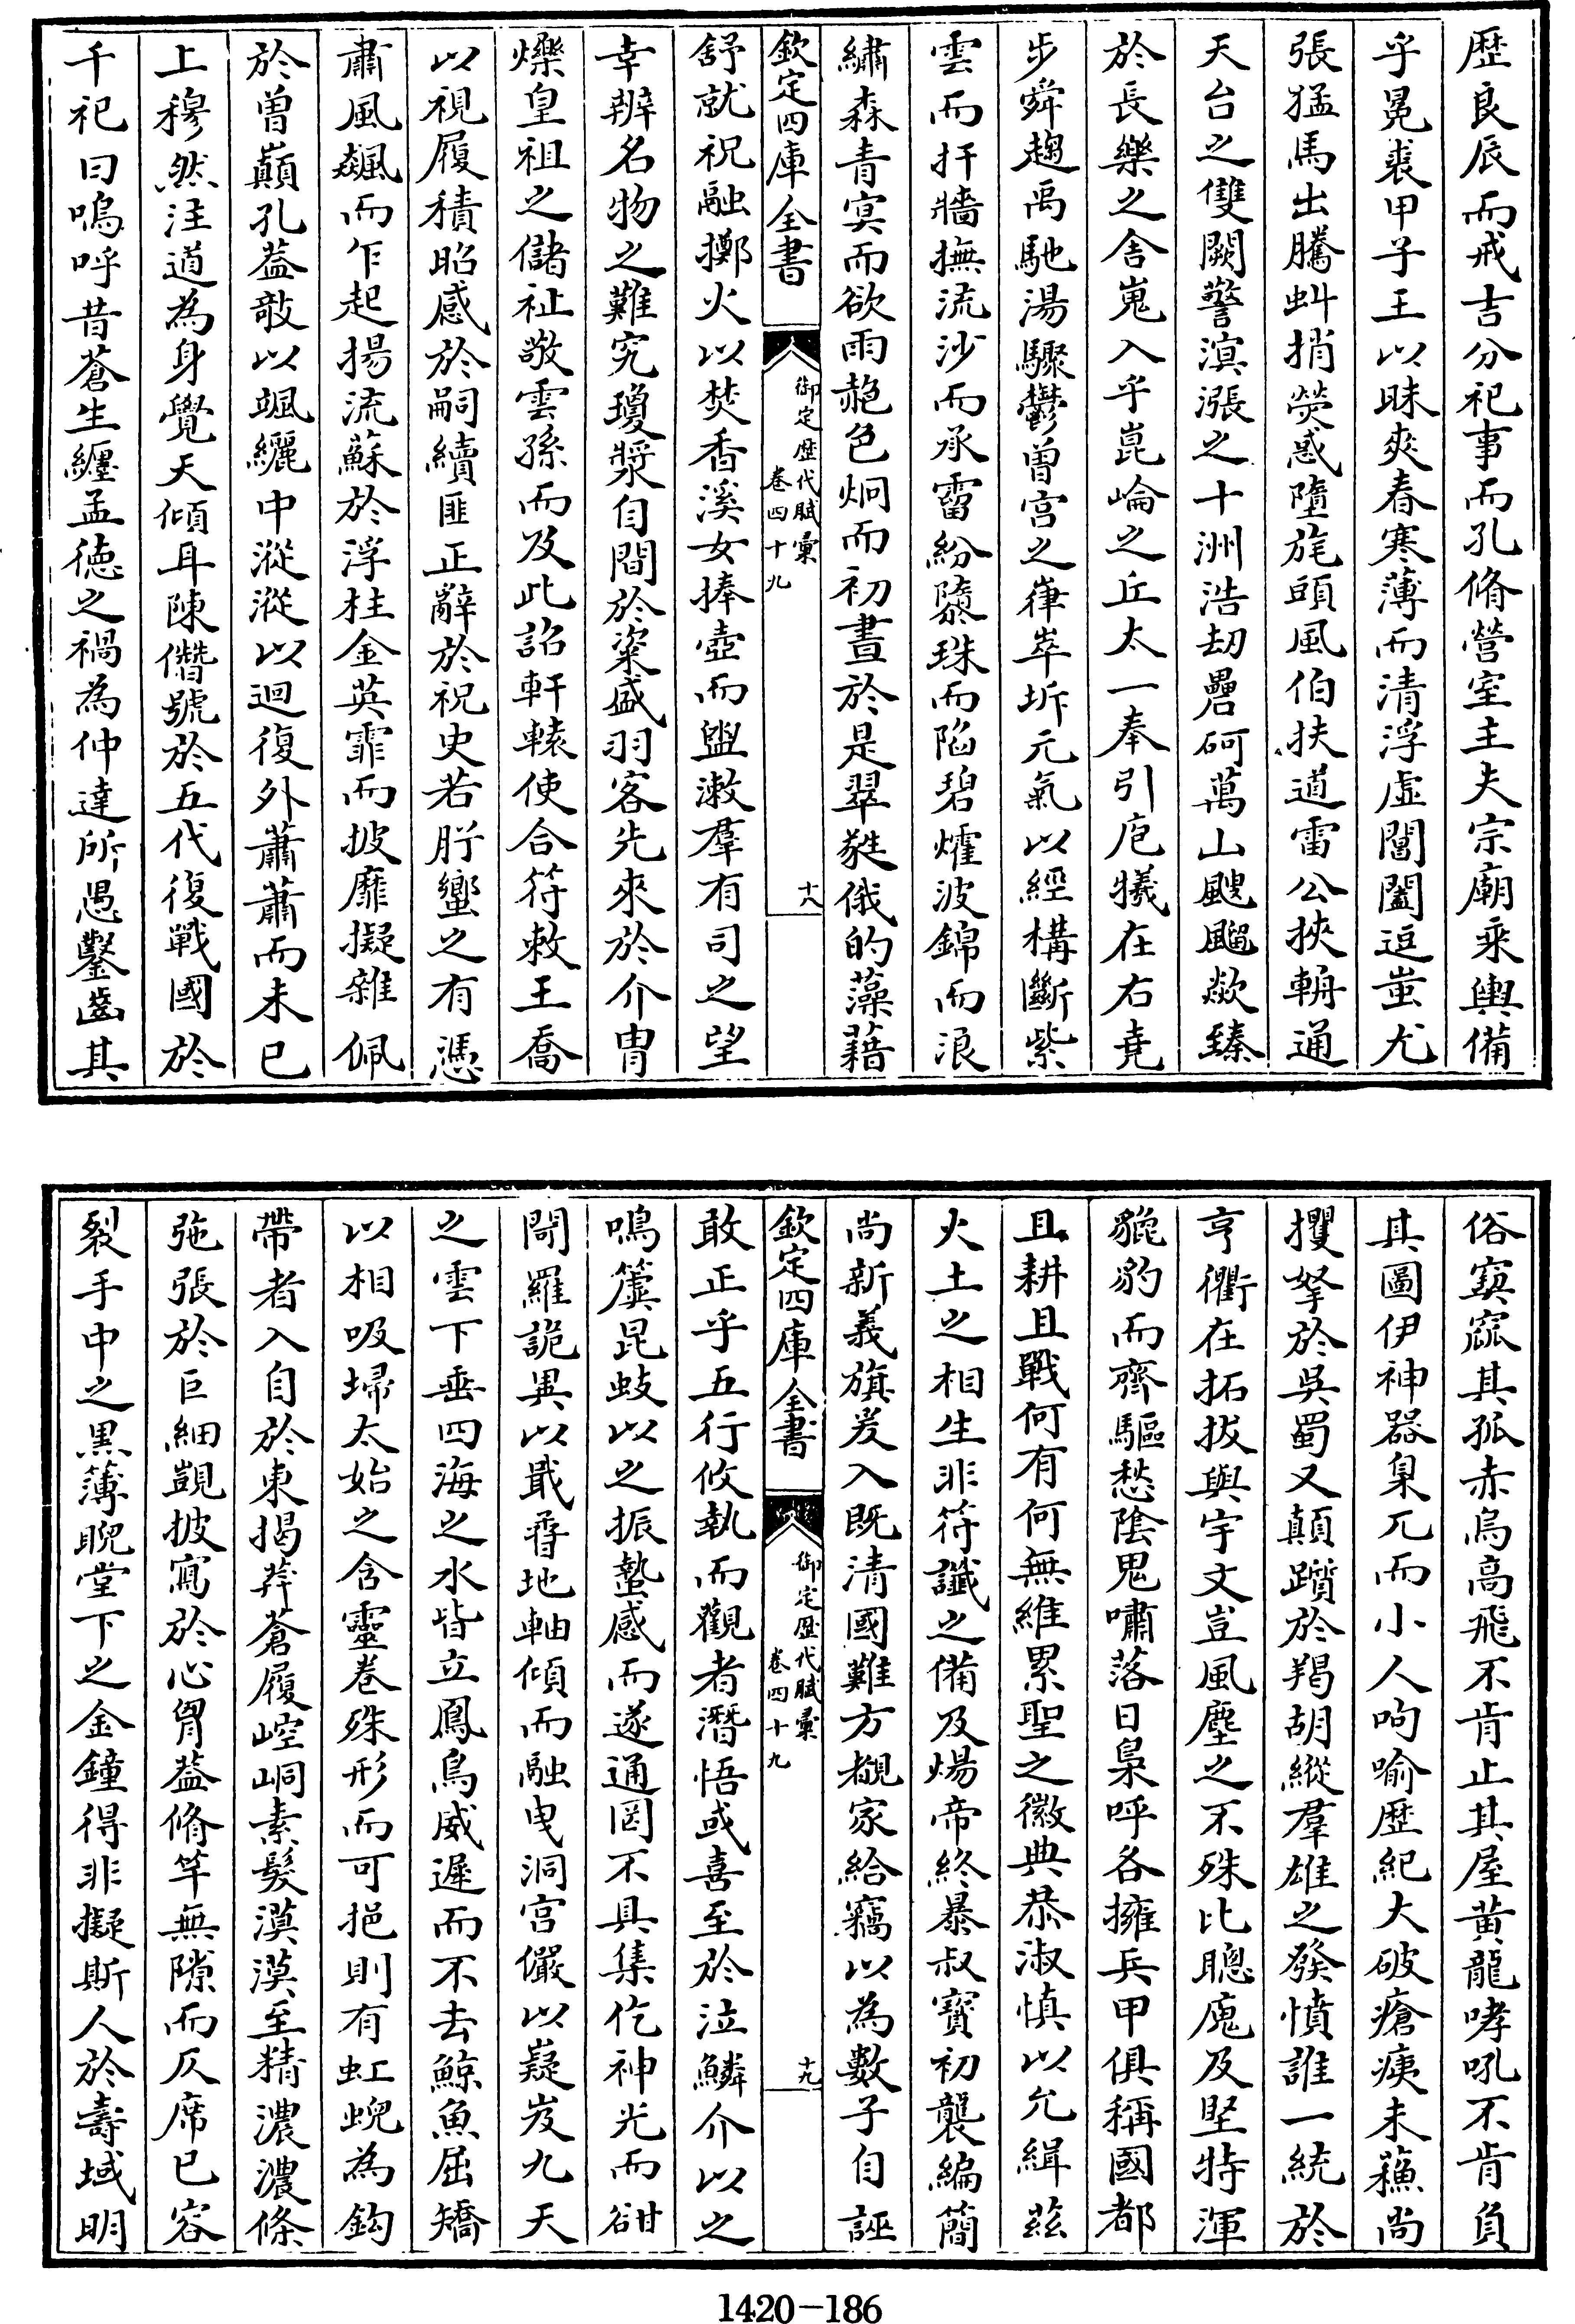 歴良辰而戒吉分祀事而孔脩營室主夫宗廟乘輿備
乎冕裘甲子王以昧爽春寒薄而清浮虛閶闔逗蚩尤
張猛馬出騰虬捎熒惑墮旄頭風伯扶道雷公挾輈通
天台之雙闕警溟漲之十洲浩劫礨砢萬山飂飀歘臻
於長樂之舍嵬入乎崑崙之丘太一奉引庖犧在右堯
步舜趨禹馳湯驟鬱曽宮之嵂崒坼元氣以經構斷紫
雲而扞牆撫流沙而承霤紛隳珠而陷碧爗波錦而浪
繡森青㝠而欲雨赩色炯而初晝於是翠蕤俄的藻藉
欽定四庫全書
御定歴代賦彙
卷四十九
十八
舒就祝融擲火以焚香溪女捧壺而盥漱羣有司之望
幸辨名物之難究瓊漿自間於粢盛羽客先來於介胄
爍皇祖之儲祉敬雲孫而及此詔軒轅使合符敕王喬
以視履積昭感於嗣續匪正辭於祝史若肸蠁之有憑
肅風飇而乍起揚流蘇於浮柱金英霏而披靡擬雜佩
於曽巔孔葢敧以颯纚中漎漎以迴復外蕭蕭而未已
上穆然注道為身覺天傾耳陳僭號於五代復戰國於
千祀曰嗚呼昔蒼生纏孟德之禍為仲達所愚鑿齒其
俗窫窳其孤赤烏高飛不肯止其屋黄龍哮吼不肯負
其圖伊神器臬兀而小人呴喻歴紀大破瘡痍未蘓尚
攫拏於吳蜀又顛躓於羯胡縱羣雄之發憤誰一統於
亨衢在拓拔與宇文豈風塵之不殊比聰廆及堅特渾
貔豹而齊驅愁陰鬼嘯落日梟呼各擁兵甲俱稱國都
且耕且戰何有何無維累聖之徽典恭淑慎以允緝茲
火土之相生非符讖之備及煬帝終暴叔寳初襲編簡
尚新義旗爰入既清國難方覩家給竊以為數子自誣
欽定四庫全書
御定歴代賦彙
卷四十九
十九
敢正乎五行攸執而觀者潛悟或喜至於泣鱗介以之
鳴簴昆蚑以之振蟄感而遂通罔不具集仡神光而㖤
閜羅詭異以戢孴地軸傾而融曳洞宮儼以嶷岌九天
之雲下垂四海之水皆立鳳鳥威遲而不去鯨魚屈矯
以相吸埽太始之含靈卷殊形而可挹則有虹蜺為鈎
帶者入自於東揭莽蒼履崆峒素髮漠漠至精濃濃條
弛張於巨細覬披寫於心胷葢脩竿無隙而仄席已容
裂手中之黒薄睨堂下之金鐘得非擬斯人於壽域明
1420—186